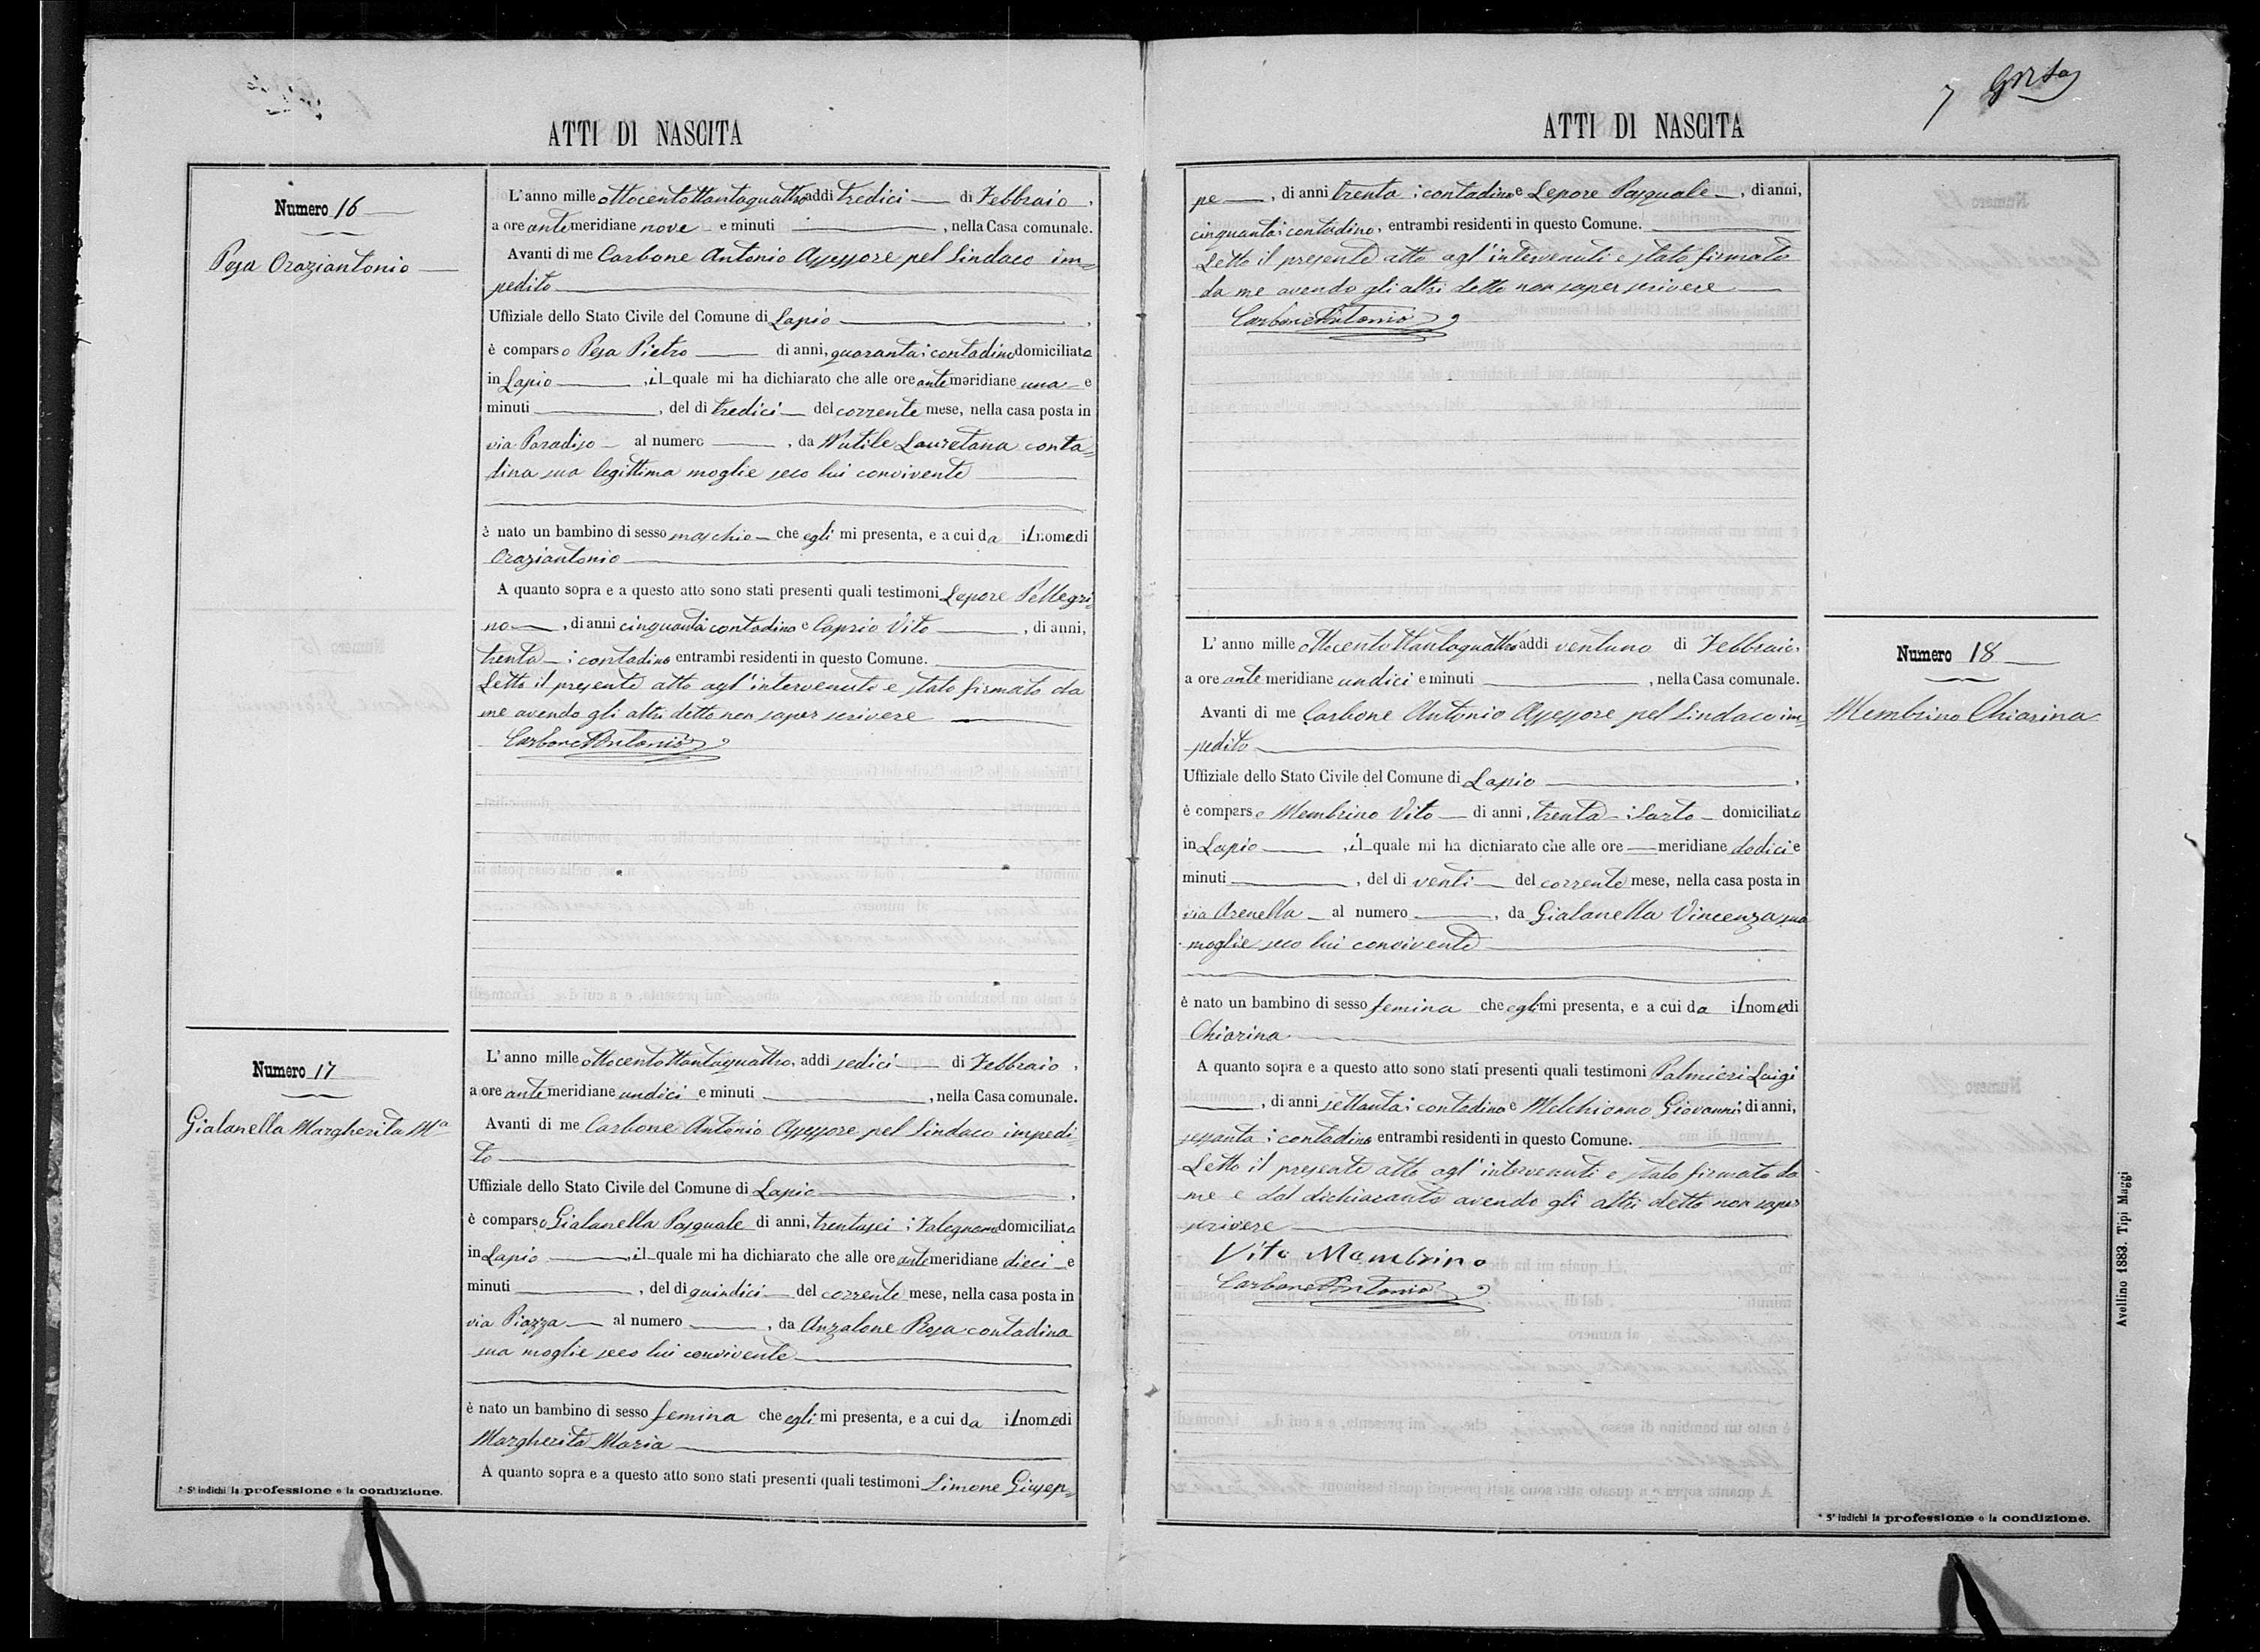 ATTI DI NASCITA
Numero 16
Pesa Oraziantonio
L'anno mille ottocentottantaquattro addi tredici di Febbraio,
a ore antemeridiane nove e minuti , nella Casa comunale.
Avanti di me Carbone Antonio Assessore pel Sindaco im=
pedito
Uffiziale dello Stato Civile del Comune di Lapio ,
è comparso Pesa Pietro di anni, quaranta; contadino domiciliato
in Lapio , il quale mi ha dichiarato che alle ore antemeridiane una e
minuti , del di tredici del corrente mese, nella casa posta in
via Paradiso al numero , da Nutile Lauretana conta=
dina sua legittima moglie seco lui convivente
è nato un bambino di sesso maschio che egli mi presenta, e a cui da il nome di
Oraziantonio
A quanto sopra e a questo atto sono stati presenti quali testimoni Lepore Pellegri=
no , di anni cinquanta contadino e Caprio Vito , di anni,
trenta ; contadino entrambi residenti in questo Comune.
Letto il presente atto agl'intervenuti e stato firmato da
me avendo gli altri detto non saper scrivere
Carbone Antonio
Numero 17
Gialanella Margherita Ma
L'anno mille ottocentottantaquattro, addi sedici di Febbraio,
a ore antemeridiane undici e minuti , nella Casa comunale.
Avanti di me Carbone Antonio Assessore pel Sindaco impedi=
to
Uffiziale dello Stato Civile del Comune di Lapio ,
è comparso Gialanella Pasquale di anni, trentasei ; Falegname domiciliato
in Lapio , il quale mi ha dichiarato che alle ore antemeridiane dieci e
minuti , del di quindici del corrente mese, nella casa posta in
via Piazza al numero , da Anzalone Rosa contadina
sua moglie seco lui convivente
è nato un bambino di sesso femina che egli mi presenta, e a cui da il nome di
Margherita Maria
A quanto sopra e a questo atto sono stati presenti quali testimoni Simone Giusep=
* S'indichi la professione o la condizione.
7
ATTI DI NASCITA
pe , di anni trenta ; contadino e Lepore Pasquale , di anni,
cinquanta; contadino, entrambi residenti in questo Comune.
Letto il presente atto agl'intervenuti e stato firmato
da me avendo gli altri detto non saper scrivere
Carbone Antonio
L'anno mille ottocentottantaquattro addi ventuno di Febbraio,
a ore antemeridiane undici e minuti , nella Casa comunale.
Avanti di me Carbone Antonio Assessore pel Sindaco im=
pedito
Uffiziale dello Stato Civile del Comune di Lapio ,
è comparso Membrino Vito di anni, trenta ; Sarto domiciliato
in Lapio , il quale mi ha dichiarato che alle ore meridiane dodici e
minuti , del di venti del corrente mese, nella casa posta in
via Arenella al numero , da Gialanella Vincenza sua
moglie seco lui convivente
è nato un bambino di sesso femina che egli mi presenta, e a cui da il nome di
Chiarina
A quanto sopra e a questo atto sono stati presenti quali testimoni Palmieri Luigi
, di anni settanta ; contadino e Melchionno Giovanni, di anni,
sessanta ; contadino entrambi residenti in questo Comune.
Letto il presente atto agl'intervenuti e stato firmato da
me e dal dichiarante avendo gli altri detto non saper
scrivere
Vito Membrino
Carbone Antonio
Numero 18
Membrino Chiarina
* S'indichi la professione o la condizione.
Avellino 1883. Tipi Maggi